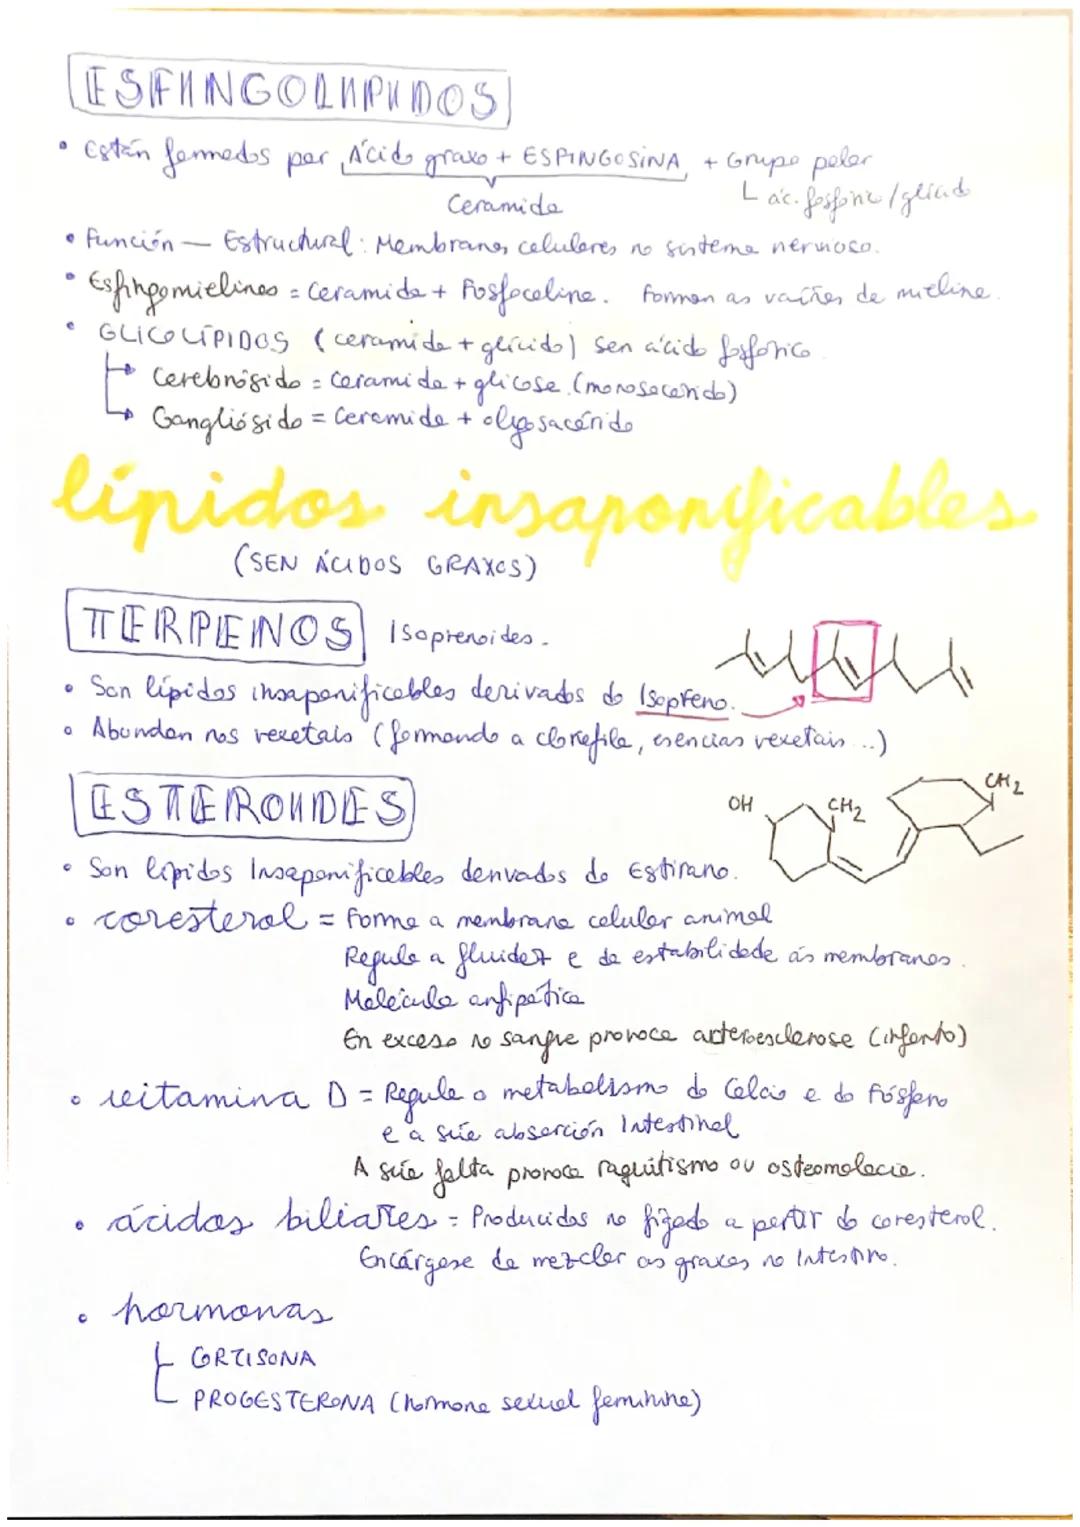 ESFINGOLIPIDOS
• Están formados por Ácido graxo + ESPINGOSINA + Grupo polar
Ceramida
ác. fosfóric/glícido
• Función — Estructural: Membranas celulares no sistema nervioso.
• Esfingomielinas = Ceramida + Fosfocolina. Forman as vaíñas de mielina.
• GLICOLÍPIDOS (ceramida + glícido) Sen ácido fosfórico
Cerebrósido = Ceramida + glicosa (monosacárido)
Gangliósido = Ceramida + oligosacárido
lípidos insaponificables
(SEN ÁCIDOS GRAXOS)
TERPENOS Isoprenoides.
• Son lípidos insaponificables derivados do Isopreno.
• Abundan nos vexetais (formando a clorofila, esencias vexetais...)
ESTEROIDES
OH CH2 CH2
• Son lípidos Insaponificables derivados do Estirano.
• coresterol = Forma a membrana celular animal
Regula a fluidez e da estabilidade ás membranas.
Molécula anfipática
En exceso no sangue provoca arteroesclerose (infarto)
• vitamina D = Regula o metabolismo do Calcio e do Fósforo
e a súa absorción Intestinal
A súa falta provoca raquitismo ou osteomalacia.
• ácidos biliares = Producidos no fígado a partir do coresterol.
Encárgase de mezclar as graxas no Intestino.
• hormonas
CORTISONA
PROGESTERONA (hormona sexual feminina)